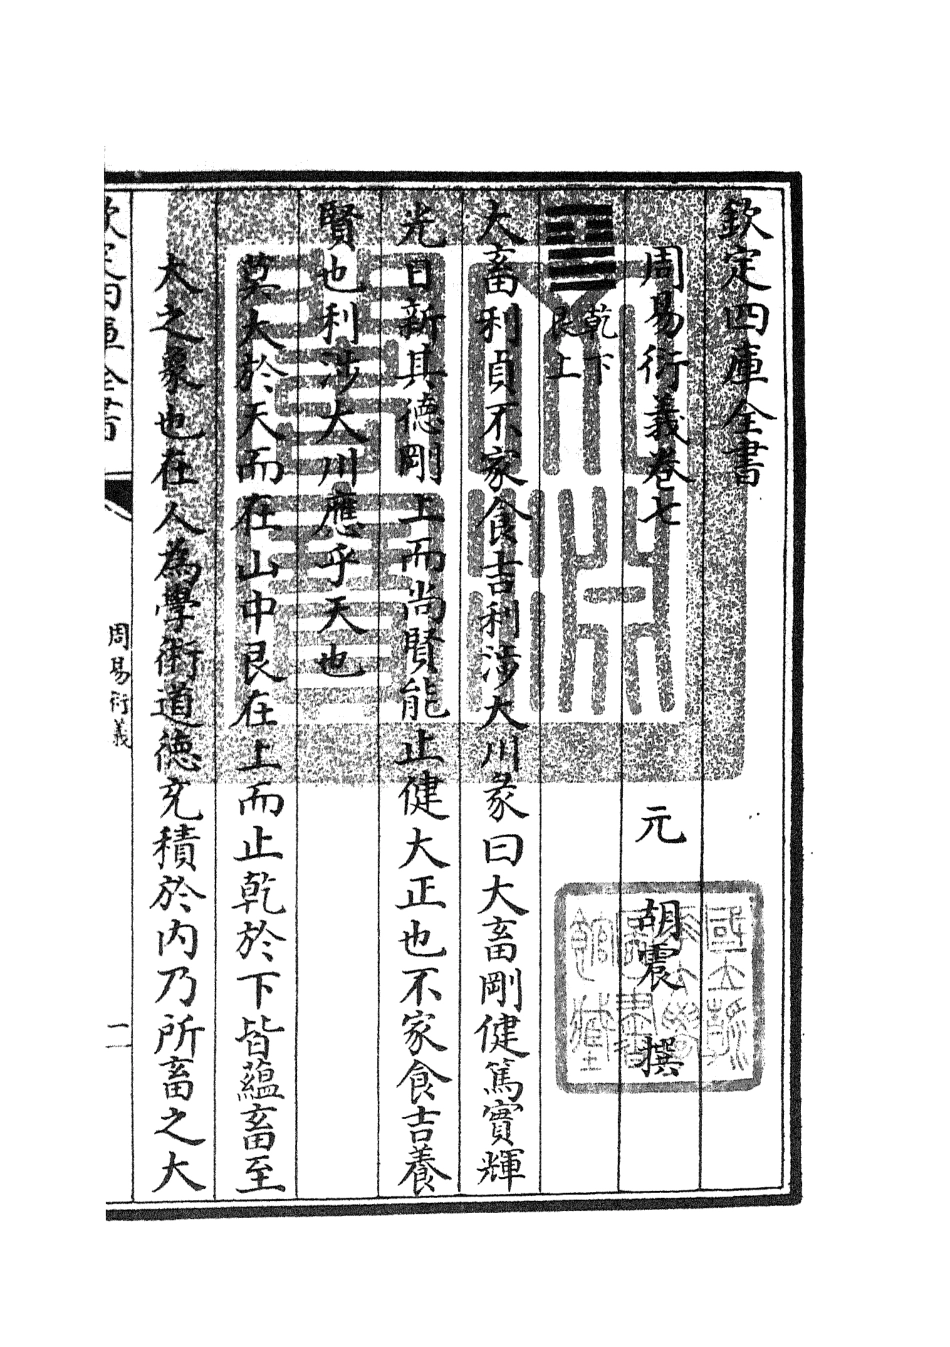 欽定四庫全書
周易衍義卷七
元 胡震 撰
乾下
艮上
大畜利貞不家食吉利涉大川彖曰大畜剛健篤實輝
光日新其德剛上而尚賢能止健大正也不家食吉養
賢也利涉大川應乎天也
莫大於天而在山中艮在上而止乾於下皆蘊畜至
大之象也在人為學術道德充積於內乃所畜之大
欽定四庫全書
周易衍義
一